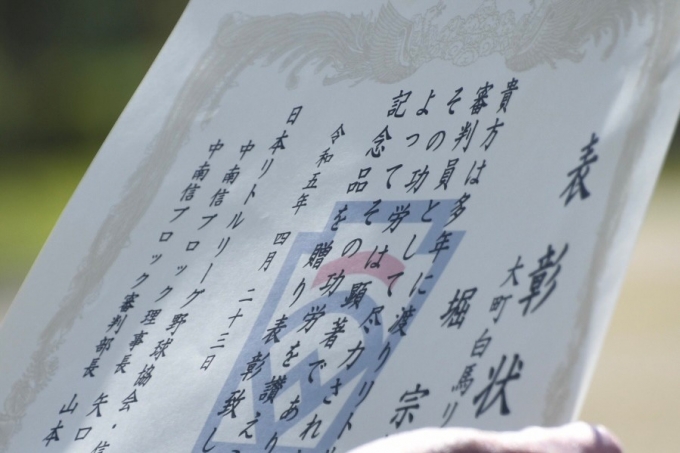 表彰状
大町白馬リ
堀 宗
貴方は多年に渡りリトル
審判員として尽力され
その功労は顕著であり
よってその功労を讃え
記念品を贈り表彰致し
令和五年 四月 二十三日
日本リトルリーグ野球協会・信
中南信ブロック理事長 矢口
中南信ブロック審判部長 山本